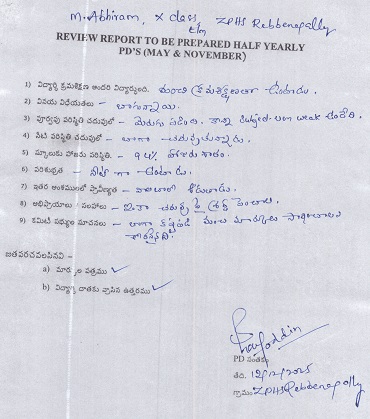 M. Abhiram, X class,
E/m ZPHS Rebbenapally
REVIEW REPORT TO BE PREPARED HALF YEARLY
PD'S (MAY & NOVEMBER)
1) విద్యార్థి క్రమశిక్షణ అందరి విద్యార్థులది. మంచి క్రమశిక్షణతో ఉంటాడు.
2) వినయ విధేయతలు – బాగున్నాయి.
3) పూర్వపు పరిస్థితి చదువులో – మెరుగు పడింది. కాని subject లలో weak ఉండేది.
4) నేటి పరిస్థితి చదువులో – బాగా చదువుతున్నాడు.
5) స్కూలుకు హాజరు పరిస్థితి. – 94% హాజరు శాతం.
6) పరిశుభ్రత – నీట్ గా ఉంటాడు.
7) ఇతర అంశములలో ప్రావీణ్యత –
8) అభిప్రాయాలు సలహాలు – ఇంకా చదువు పై శ్రద్ధ పెంచాలి.
9) కమిటీ సభ్యుల సూచనలు – బాగా కష్టపడి మంచి మార్కులు సాధించాలని
జతపరచవలసినవి –
a) మార్కుల పత్రము ✓
b) విద్యార్థి దాతకు వ్రాసిన ఉత్తరము ✓
PD సంతకం
తేది. 12/12/2025
గ్రామం ZPHS Rebbenapally